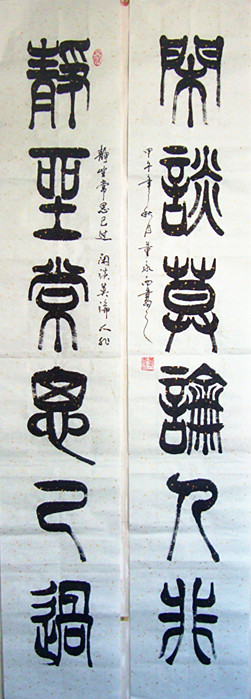 閑談莫論人非
甲午年秋月董永西書之
靜坐常思己過
靜坐常思己过 闲谈莫論人非